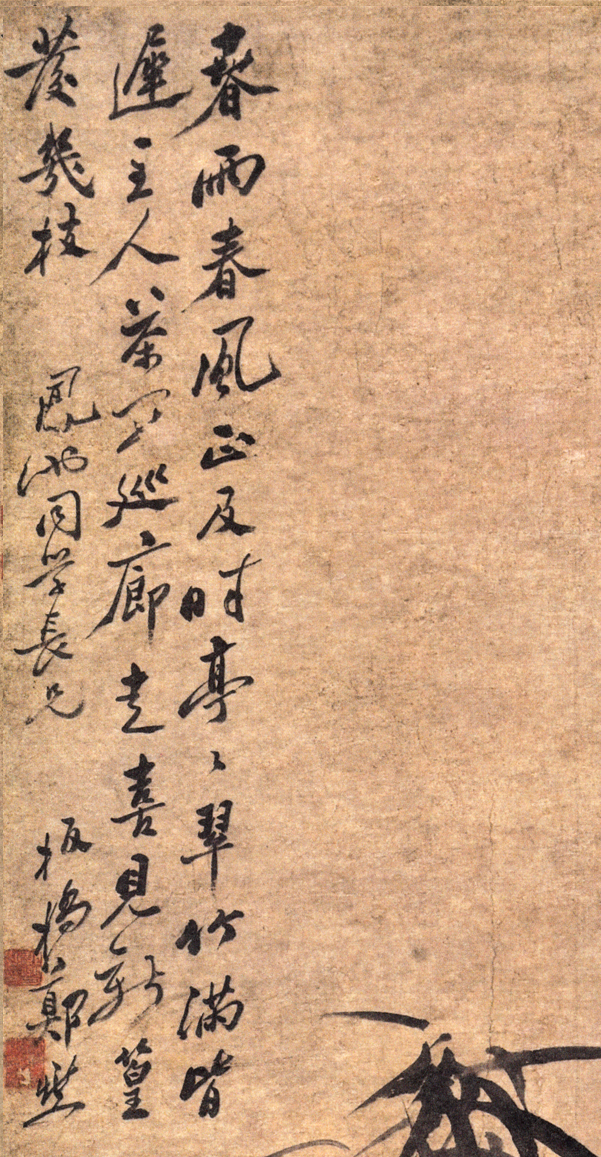 春雨春風正及時亭〻翠竹滿皆
遲主人茶罷巡廊走喜見新篁
發幾枝 鳳池同学長兄 板橋鄭燮